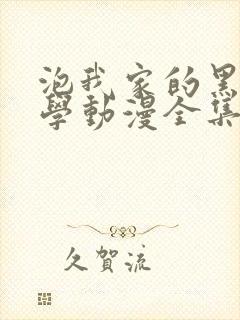 泡我家的黑
學動漫全集
久賀流